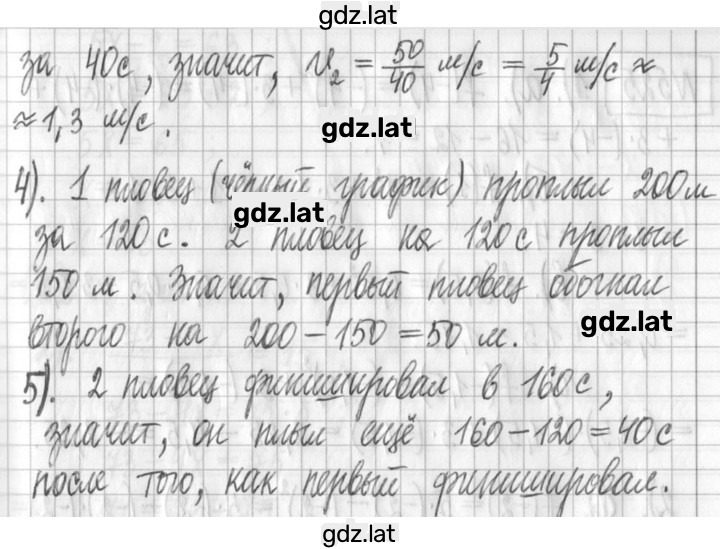 gdz.lat
за 40с, значит, v₂ = 50/40 м/с = 5/4 м/с ≈
≈ 1,3 м/с.
gdz.lat
4). 1 пловец (чёрный график) проплыл 200м
gdz.lat
за 120 с. 2 пловец на 120 с проплыл
150 м. Значит, первый пловец обогнал
второго на 200 – 150 = 50 м.
gdz.lat
5). 2 пловец финишировал в 160с,
значит, он плыл ещё 160 – 120 = 40 с
после того, как первый финишировал.
gdz.lat